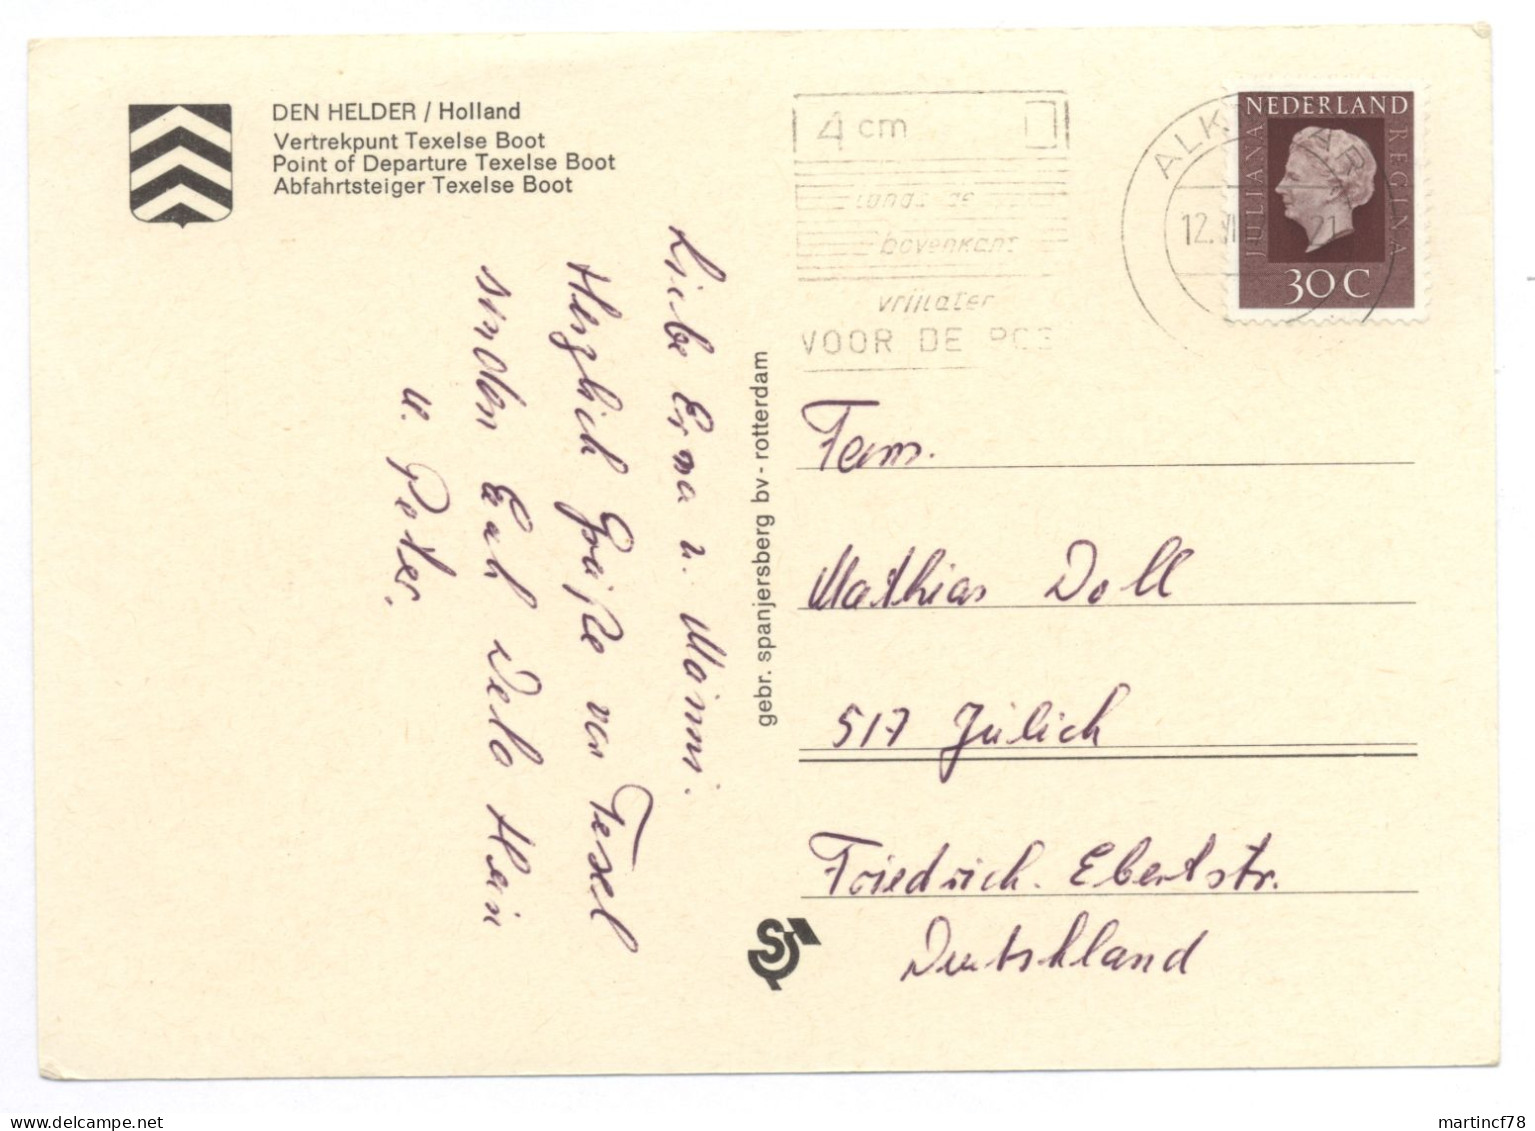 DEN HELDER / Holland
Vertrekpunt Texelse Boot
Point of Departure Texelse Boot
Abfahrtsteiger Texelse Boot
4 cm
langs de
bovenkant
vrijlaten
VOOR DE POS
ALKMAAR
12.VI 21
NEDERLAND
JULIANA
REGINA
30 C
Liebe Erna u. Manni.
Herzlich Grüße von Texel
senden Euch Delo Hein
u. Peter.
gebr. spanjersberg bv - rotterdam
Fam.
Mathias Doll
517 Jülich
Friedrich. Ebertstr.
Deutschland
S
martincf78